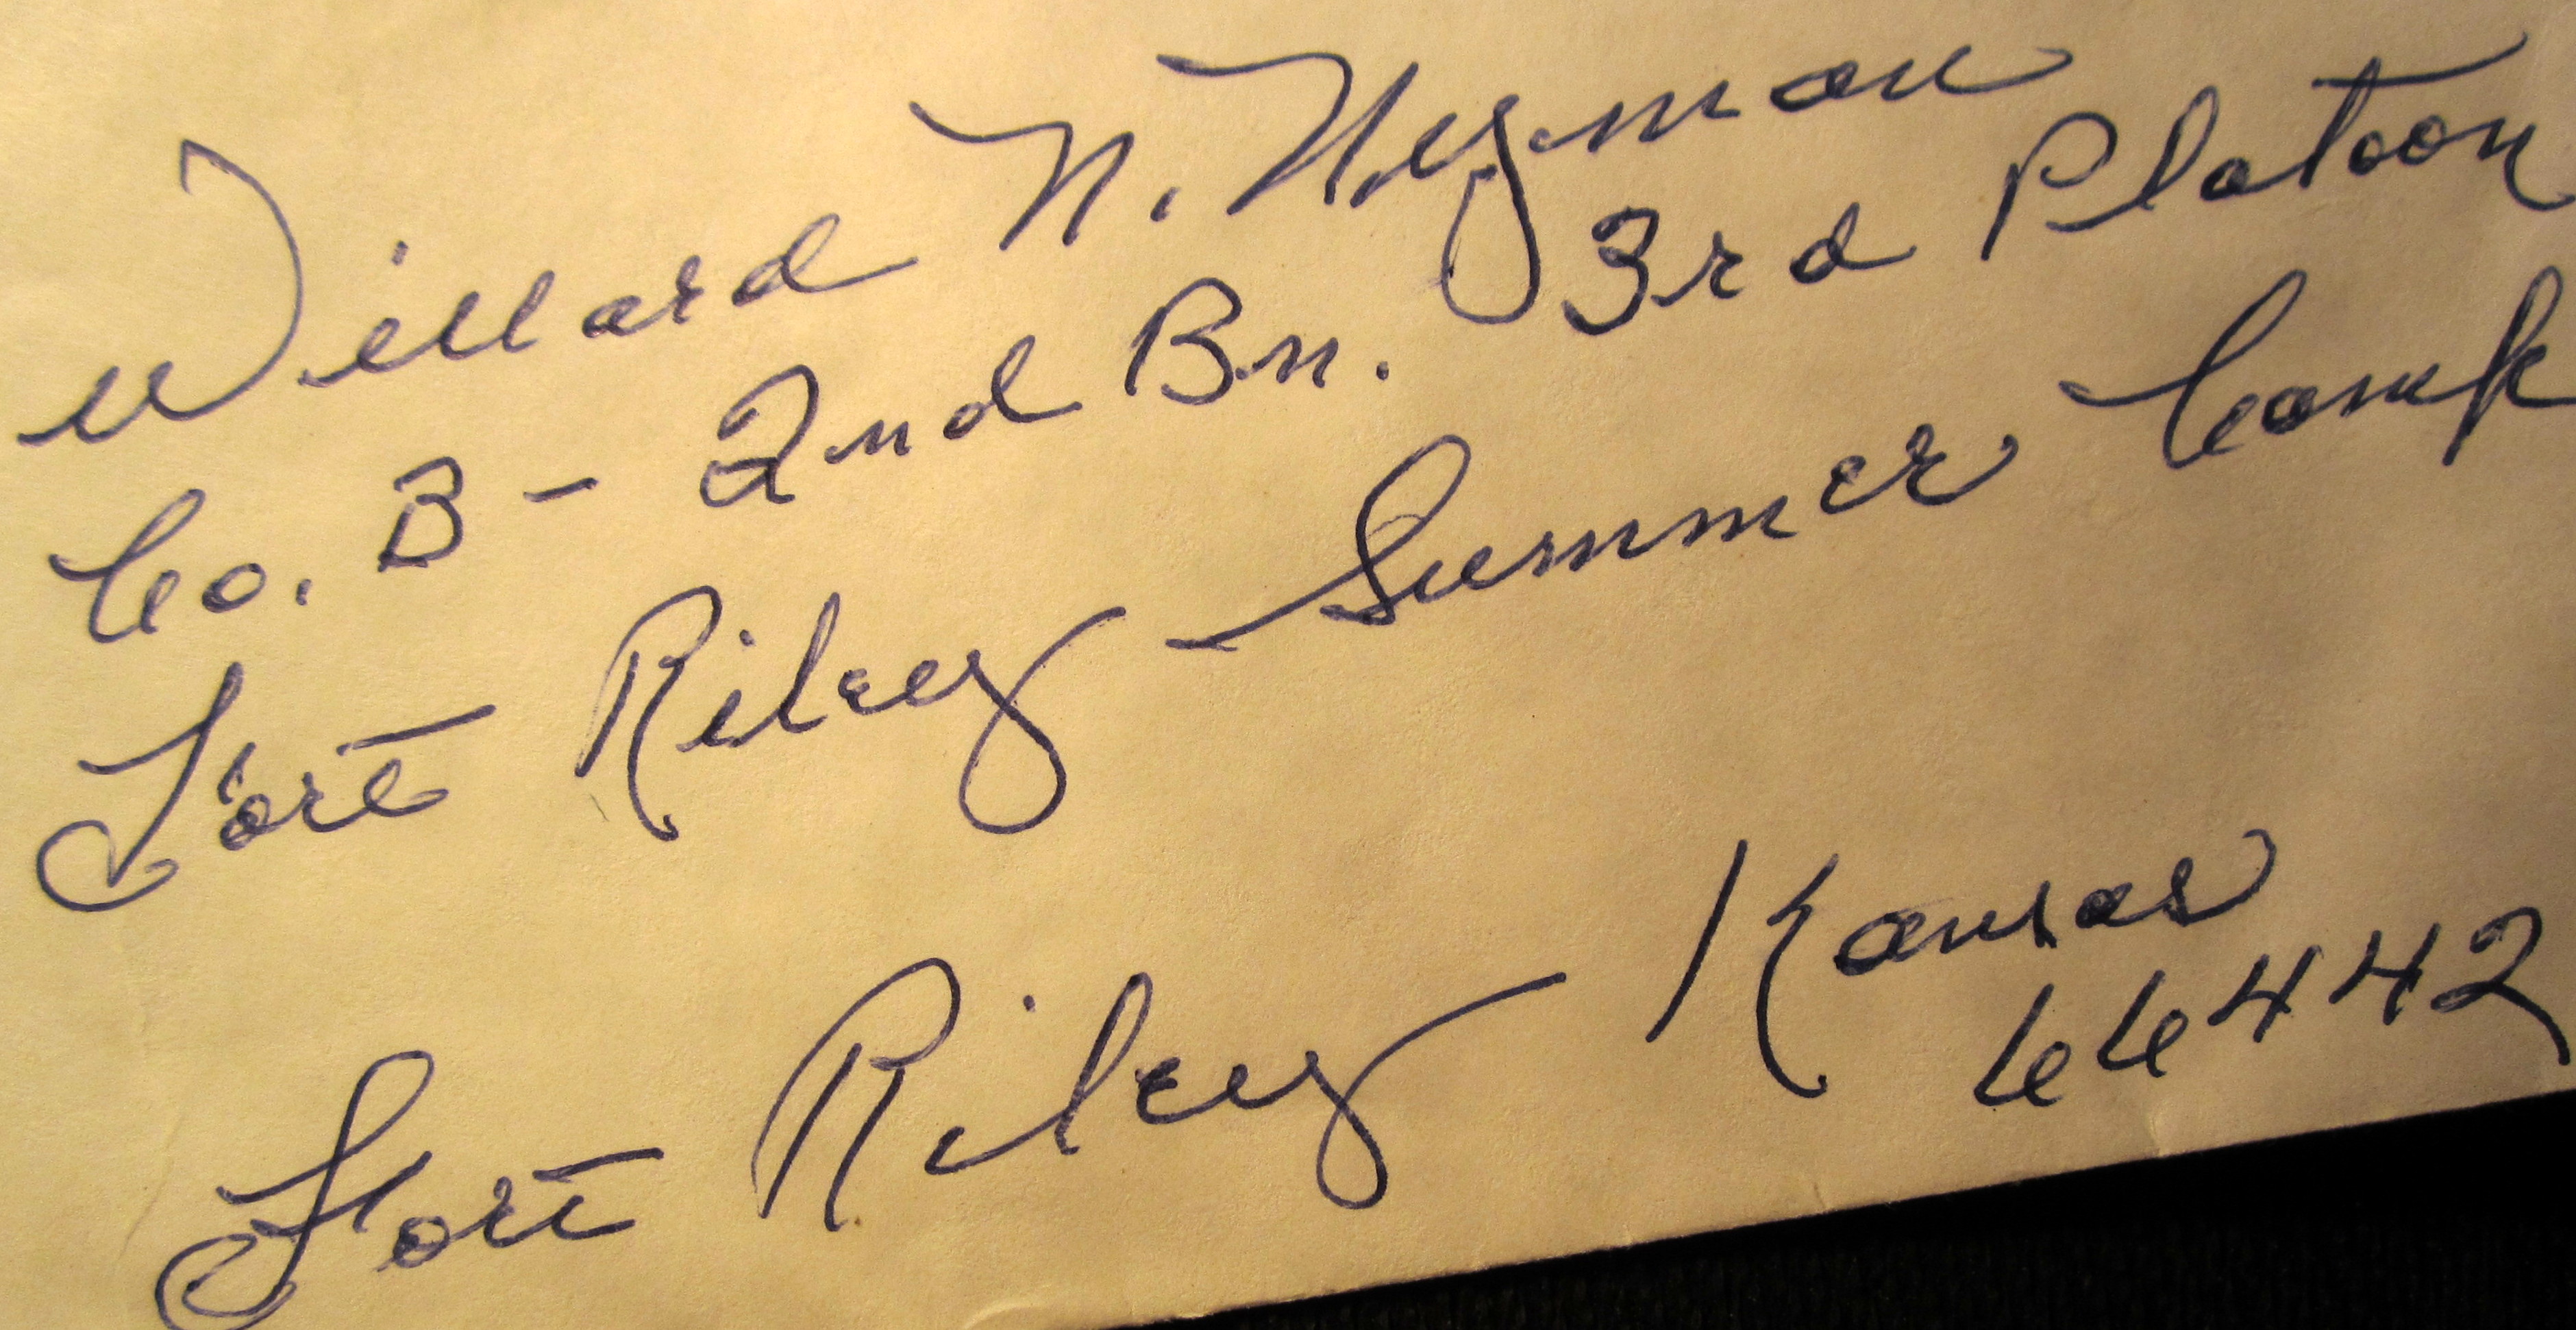 Willard N. Nyman
Co. B - 2nd Bn. 3rd Platoon
Fort Riley Summer Camp
Fort Riley Kansas
66442